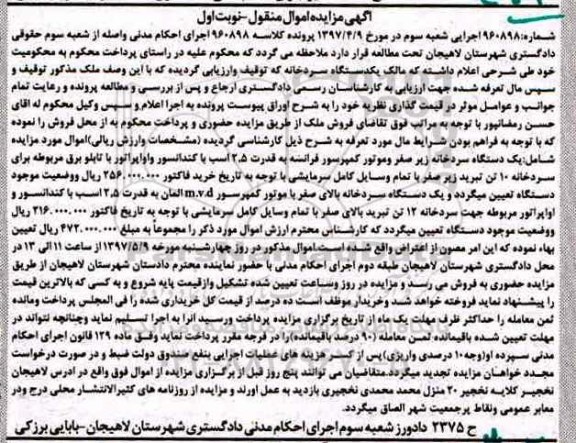 آگهی مزایده اموال منقول-نوبت اول
شماره:۹۶۰۸۹۸ اجرایی شعبه سوم در مورخ ۱۳۹۷/۴/۹ پرونده کلاسه ۹۶۰۸۹۸ اجرای احکام مدنی واصله از شعبه سوم حقوقی
دادگستری شهرستان لاهیجان تحت مطالعه قرار دارد ملاحظه می گردد که محکوم علیه در راستای پرداخت محکوم به محکومیت
خود طی شرحی اعلام داشته که مالک یکدستگاه سردخانه که توقیف وارزیابی گردیده که با این وصف ملک مذکور توقیف و
سپس مال تعرفه شده جهت ارزیابی به کارشناسان رسمی دادگستری ارجاع و پس از بررسی و مطالعه پرونده و رعایت تمام
جوانب و عوامل موثر در قیمت گذاری نظریه خود را به شرح اوراق پیوست پرونده به اجرا اعلام و سپس وکیل محکوم له اقای
حسن رمضانپور با توجه به مراتب فوق تقاضای فروش ملک از طریق مزایده حضوری و پرداخت محکوم به از محل فروش را نموده
که با توجه به فراهم بودن شرایط مال مورد تعرفه به شرح ذیل کارشناسی گردیده (مشخصات وارزش ریالی)اموال مورد مزایده
شامل:یک دستگاه سردخانه زیر صفر وموتور کمپرسور فرانسه به قدرت ۲.۵ اسب با کندانسور واواپراتور با تابلو برق مربوطه برای
سردخانه ۱۰ تن تبرید زیر صفر با تمام وسایل کامل سرمایشی با توجه به تاریخ خرید فاکتور ۲۵۶.۰۰۰.۰۰۰ ریال ووضعیت موجود
دستگاه تعیین میگردد و یک دستگاه سردخانه بالای صفر با موتور کمپرسور m.v.d المان به قدرت ۲.۵ اسب با کندانسور و
اواپراتور مربوطه جهت سردخانه ۱۲ تن تبرید بالای صفر با تمام وسایل کامل سرمایشی با توجه به تاریخ فاکتور ۲۱۶.۰۰۰.۰۰۰ ریال
ووضعیت موجود دستگاه تعیین میگردد که کارشناس محترم ارزش اموال مورد ذکر را مجموعاً به مبلغ ۴۷۲.۰۰۰.۰۰۰ ریال تعیین
بهاء نموده که این امر مصون از اعتراض واقع شده است.اموال مذکور در روز چهارشنبه مورخه ۱۳۹۷/۵/۹ از ساعت ۱۱ الی ۱۳ در
محل دادگستری شهرستان لاهیجان طبقه دوم اجرای احکام مدنی با حضور نماینده محترم دادستان شهرستان لاهیجان از طریق
مزایده حضوری به فروش می رسد و مزایده در روز وساعت تعیین شده تشکیل وازقیمت پایه شروع و به کسی که بالاترین قیمت
را پیشنهاد نماید فروخته خواهد شد وخریدار موظف است ده درصد از قیمت کل خریداری شده را فی المجلس پرداخت ومانده
ثمن معامله را حداکثر ظرف مهلت یک ماه از تاریخ برگزاری مزایده پرداخت ورسید انرا به اجرا تسلیم نماید وچنانچه نتواند در
مهلت تعیین شده باقیمانده ثمن معامله (۹۰ درصد باقیمانده)را در فرجه مقرر پرداخت نماید وفق ماده ۱۲۹ قانون اجرای احکام
مدنی سپرده او(وجه۱۰ درصدی واریزی)پس از کسر هزینه های عملیات اجرایی بنفع صندوق دولت ضبط و در صورت درخواست
مجدد خواهان مزایده تجدید میگردد.متقاضیان می توانند پنج روز قبل از برگزاری مزایده از اموال فوق واقع در ادرس لاهیجان
نخجیر کلایه نخجیر ۲۰ منزل محمد محمدی نخجیری بازدید به عمل اورند و مزایده از روزنامه های کثیرالانتشار محلی درج ودر
معابر عمومی ونقاط پرجمعیت شهر الصاق میگردد.
ح ۲۳۷۵ دادورز شعبه سوم اجرای احکام مدنی دادگستری شهرستان لاهیجان-بابایی برزکی